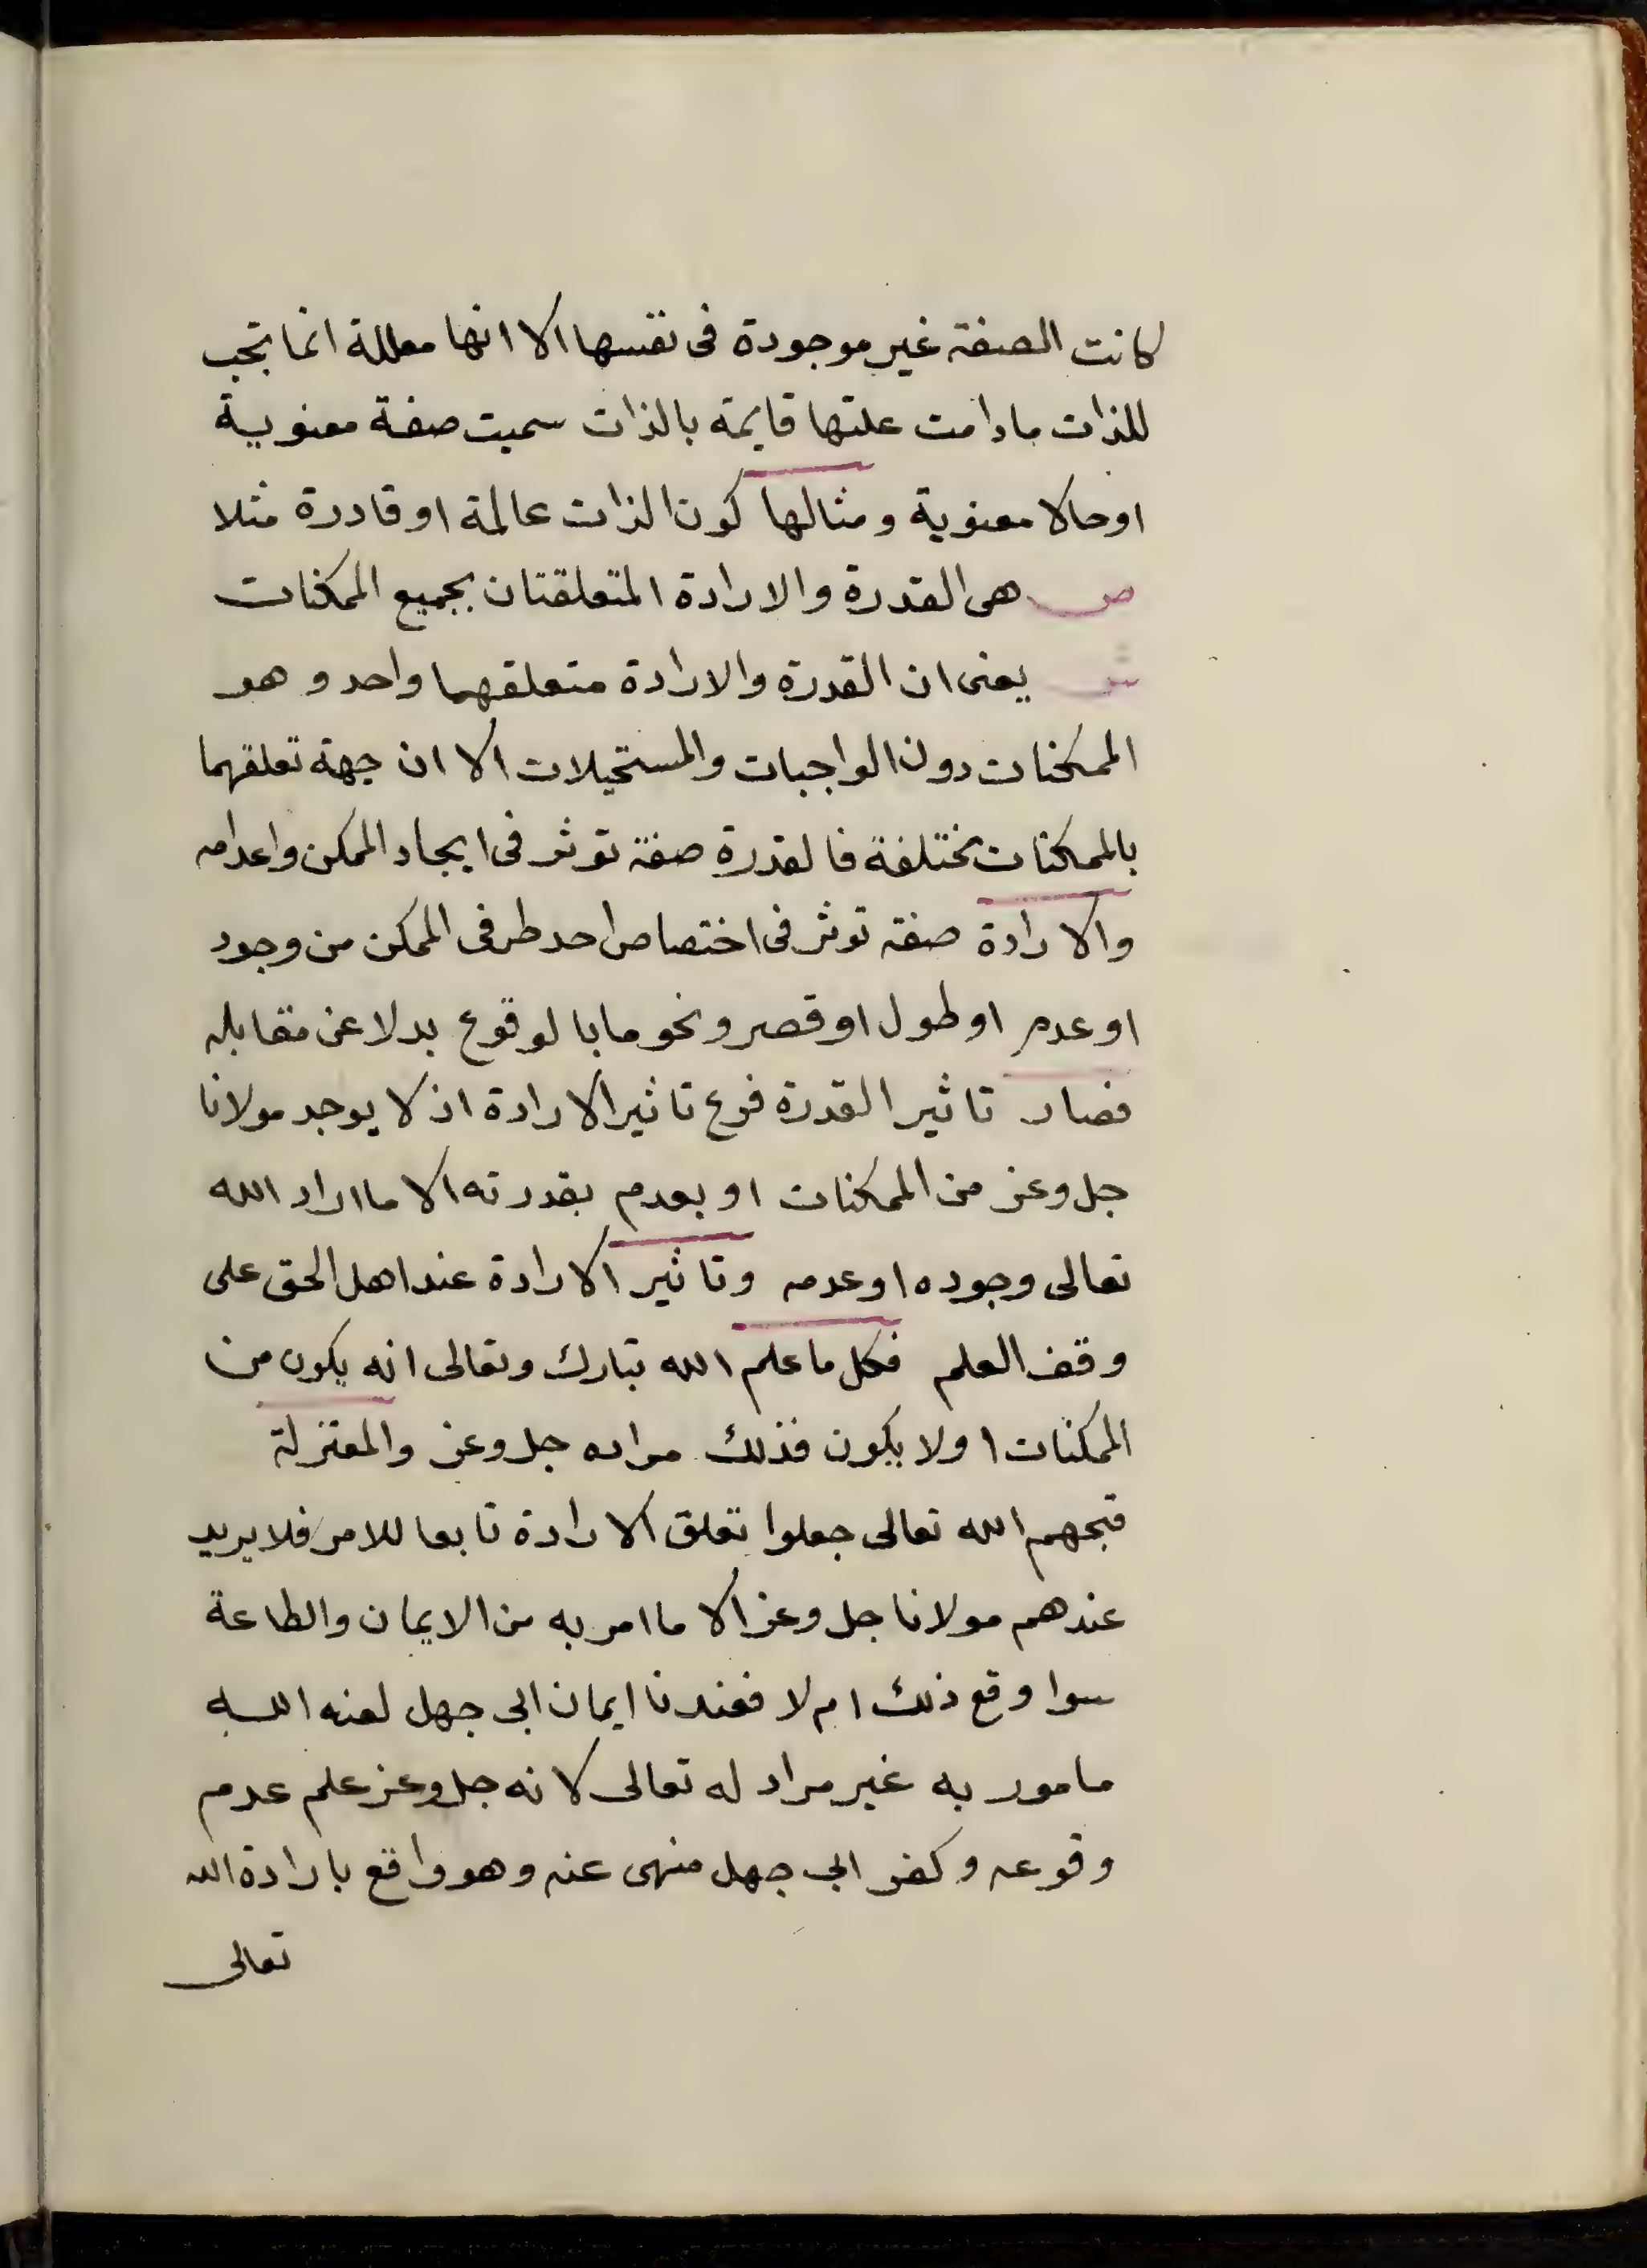 كانت الصفة غير موجودة فى نفسها الا انها معللة انما تجب
للذات مادامت علتها قايمة بالذات سميت صفة معنوية
او حالا معنوية ومثالها كون الذات عالمة او قادرة مثلا
ص هى القدرة والارادة المتعلقتان بجميع الممكنات
ش يعنى ان القدرة والارادة متعلقهما واحد وهو
الممكنات دون الواجبات والمستحيلات الا ان جهة تعلقهما
بالممكنات مختلفة فالقدرة صفة توثر فى ايجاد الممكن واعدامه
والارادة صفة توثر فى اختصاص احد طرفى الممكن من وجود
او عدم او طول او قصر ونحوها بالوقوع بدلا عن مقابله
فصار تاثير القدرة فرع تاثير الارادة اذ لا يوجد مولانا
جل وعز من الممكنات او يعدم بقدرته الا ما اراد الله
تعالى وجوده او عدمه وتاثير الارادة عند اهل الحق على
وقف العلم فكل ما علم الله تبارك وتعالى انه يكون من
الممكنات او لا يكون فذلك مراده جل وعز والمعتزلة
قبحهم الله تعالى جعلوا تعلق الارادة تابعا للامر فلا يريد
عندهم مولانا جل وعز الا ما امر به من الايمان والطاعة
سوا وقع ذلك ام لا فعندنا ايمان ابى جهل لعنه الله
مامور به غير مراد له تعالى لانه جل وعز علم عدم
وقوعه وكفر ابى جهل منهى عنه وهو واقع بارادة الله
تعالى